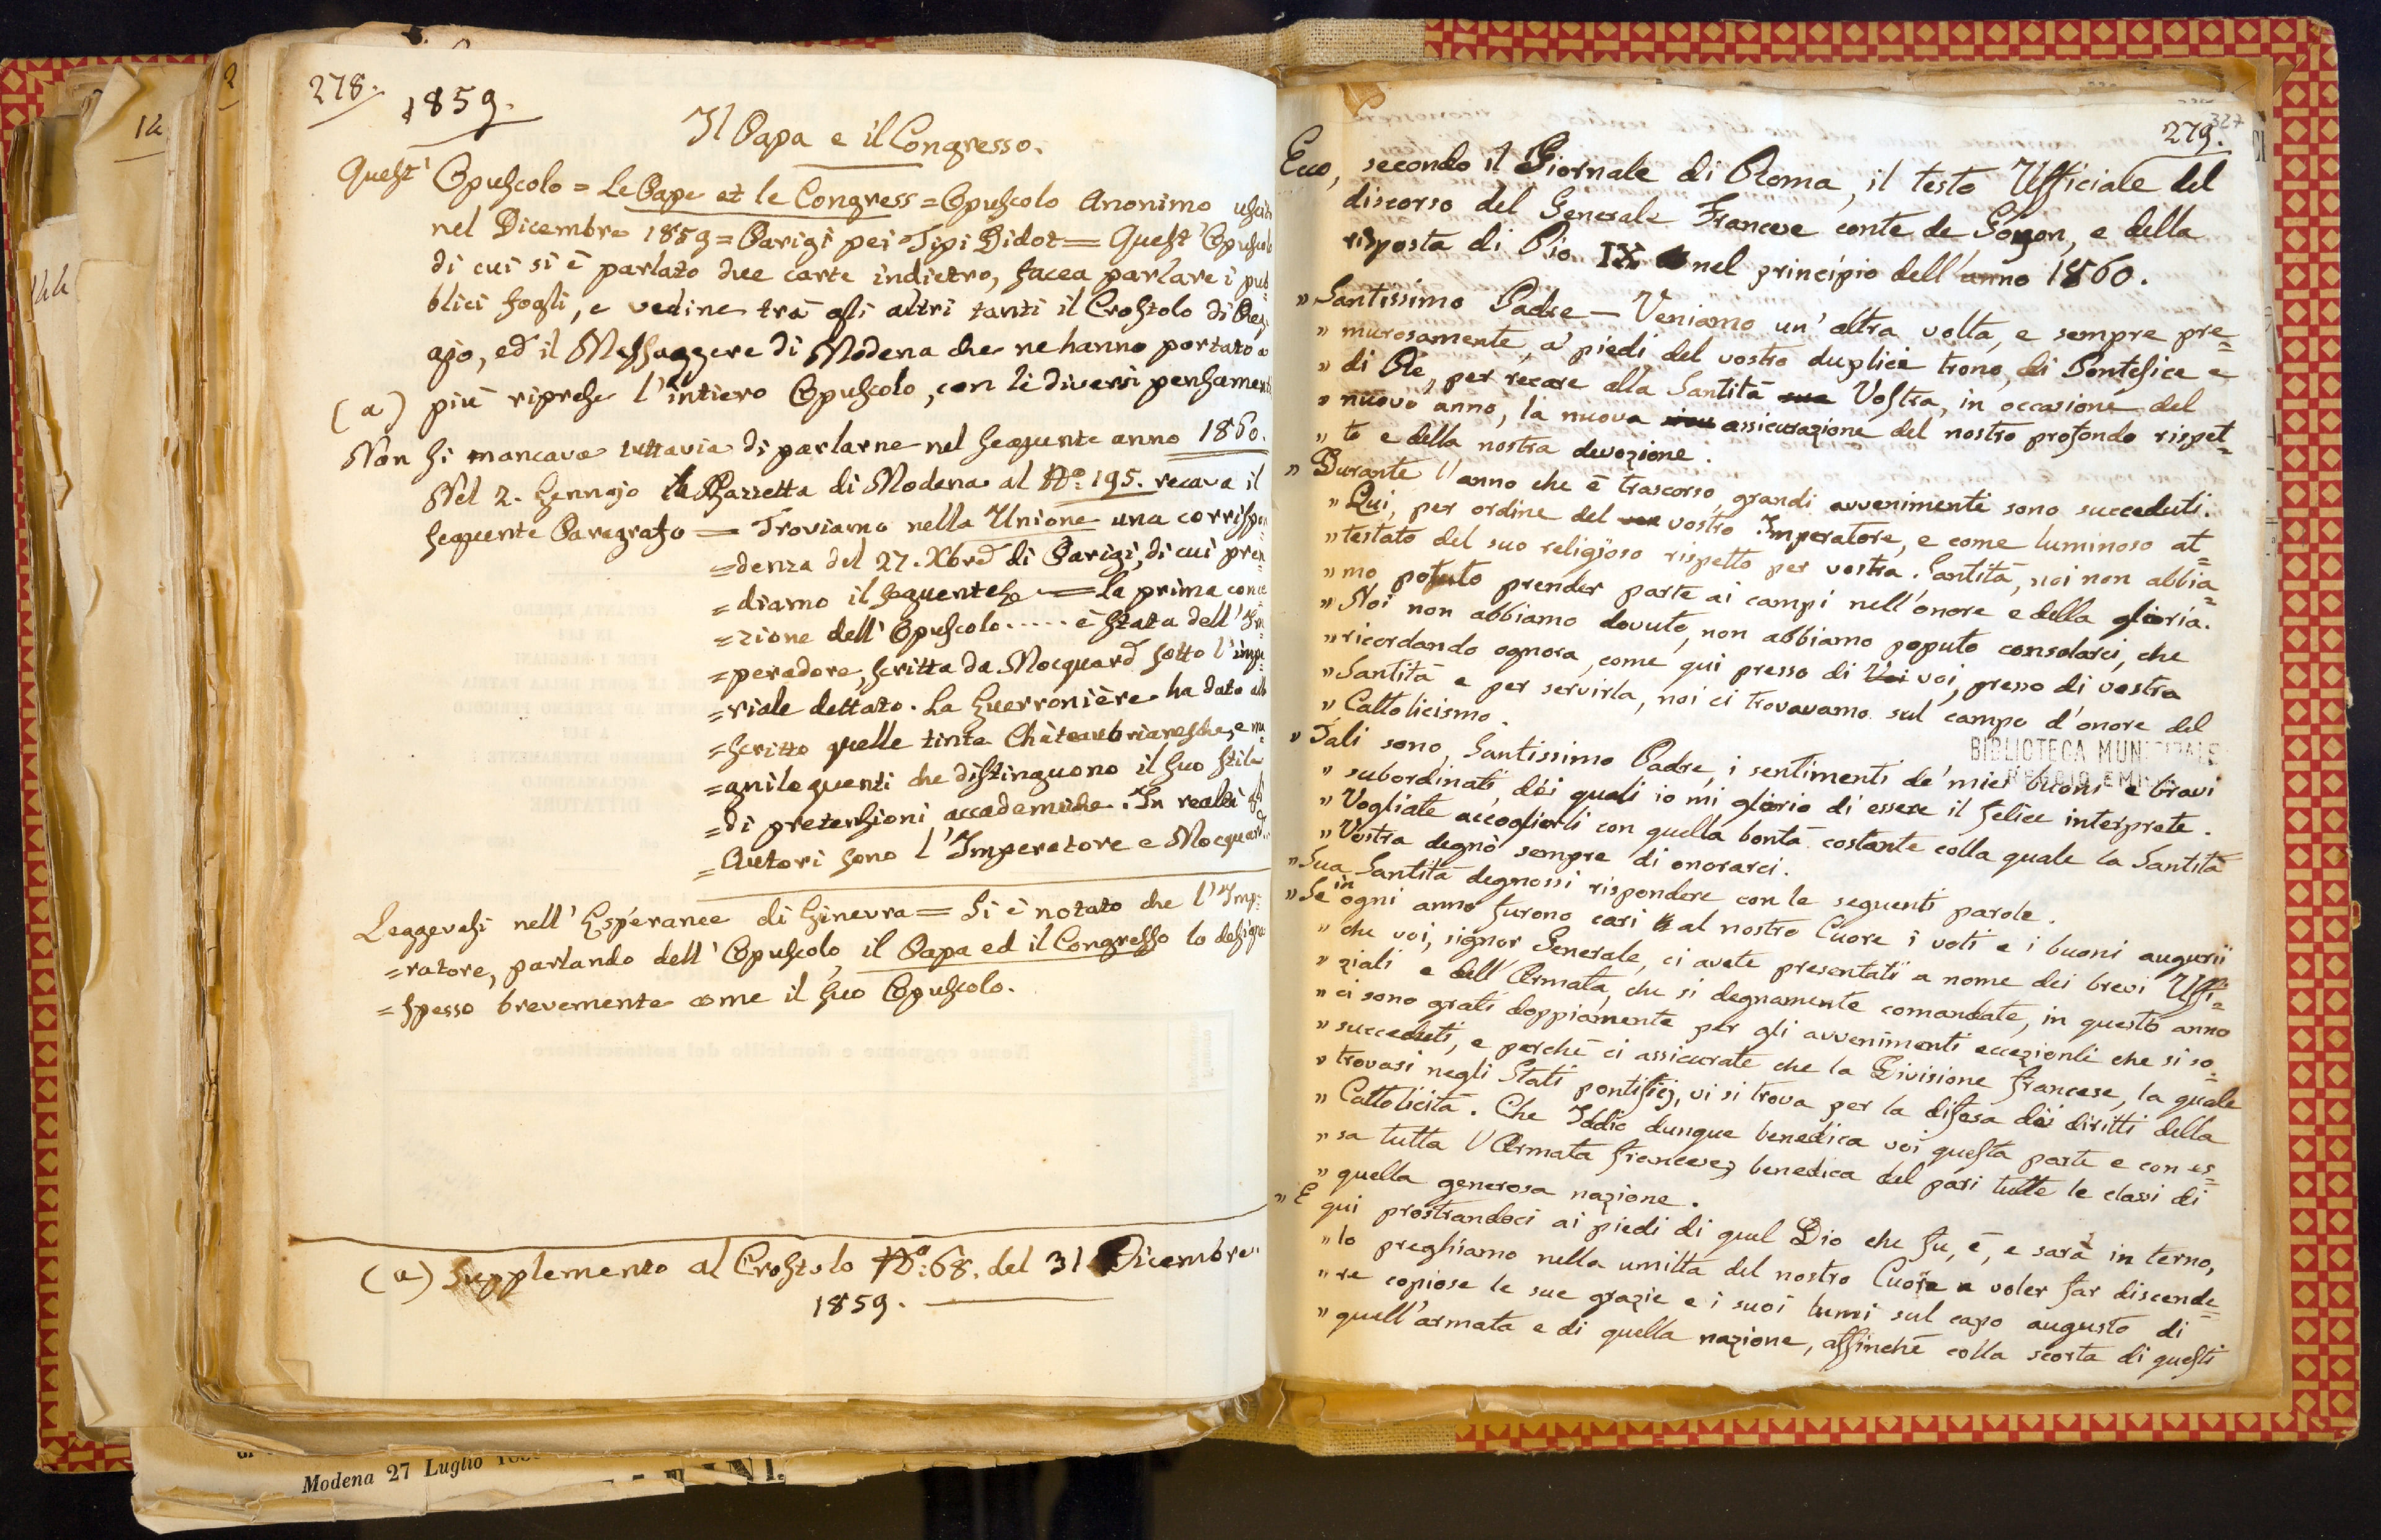 278.
1859.
Il Papa e il Congresso.
Quest' Opuscolo = Le Pape et le Congress = Opuscolo Anonimo uscito
nel Dicembre 1859 = Parigi pei Tipi Didot = Quest' Opuscolo
di cui si è parlato due carte indietro, facea parlare i pub=
blici fogli, e vedine tra gli altri tanti il Crostolo di Reg=
gio, ed il Messaggere di Modena che ne hanno portato a
(a) più riprese l'intiero Opuscolo, con li diversi pensamenti
Non si mancava tuttavia di parlarne nel seguente anno 1860.
Nel 2. Gennajo la Gazzetta di Modena al No. 195. recava il
seguente Paragrafo = Troviamo nella Unione una corrispon
=denza del 27. Xbre di Parigi, di cui pren
=diamo il seguente = La prima conce
=zione dell' Opuscolo ..... è stata dell' Im
=peradore, scritta da Mocquard sotto l'impe
=riale dettato. La Guerronière ha dato allo
=scritto quelle tinte Châteaubrianesche, e ma
=gniloquenti che distinguono il suo stile
=di pretensioni accademiche. In realtà gli
=Autori sono l'Imperatore e Mocquard.
Leggevasi nell' Espérance di Ginevra = Si è notato che l'Impe
=ratore, parlando dell' Opuscolo, il Papa ed il Congresso lo designa
=spesso brevemente come il suo Opuscolo.
(a) Supplemento al Crostolo No. 68. del 31 Dicembre
1859.
Modena 27 Luglio
327
279.
Ecco, secondo il Giornale di Roma, il testo Ufficiale del
discorso del Generale Francese conte de Goyon, e della
risposta di Pio IX nel principio dell'anno 1860.
" Santissimo Padre — Veniamo un' altra volta, e sempre pre=
" murosamente, a' piedi del vostro duplice trono, di Pontefice e
" di Re, per recare alla Santità Vostra, in occasione del
" nuovo anno, la nuova assicurazione del nostro profondo rispet=
" to e della nostra devozione.
" Durante l'anno che è trascorso, grandi avvenimenti sono succeduti.
" Qui, per ordine del vostro Imperatore, e come luminoso at=
" testato del suo religioso rispetto per vostra Santità, noi non abbia=
" mo potuto prender parte ai campi nell'onore e della gloria.
" Noi non abbiamo dovuto, non abbiamo poputo consolarci, che
" ricordando ognora, come qui presso di voi, presso di vostra
" Santità e per servirla, noi ci trovavamo sul campo d'onore del
" Cattolicismo.
" Tali sono, Santissimo Padre, i sentimenti de' miei buoni e bravi
BIBLIOTECA MUNICIPALE
REGGIO EMILIA
" subordinati, dei quali io mi glorio di essere il felice interprete.
" Vogliate accoglierli con quella bontà costante colla quale la Santità
" Vostra degnò sempre di onorarci.
" Sua Santità degnossi rispondere con le seguenti parole.
" Se in ogni anno furono cari al nostro Cuore i voti e i buoni augurii
" che voi, signor Generale, ci avete presentati a nome dei brevi Uffi=
" ziali e dell' Armata, che si degnamente comandate, in questo anno
" ci sono grati doppiamente per gli avvenimenti eccezionli che si so=
" succeduti, e perchè ci assicurate che la Divisione francese, la quale
" trovasi negli Stati pontificj, vi si trova per la difesa dei diritti della
" Cattolicità. Che Iddio dunque benedica voi questa parte e con es=
" sa tutta l'Armata francese, benedica del pari tutte le classi di
" quella generosa nazione.
" E qui prostrandoci ai piedi di quel Dio che fu, è, e sarà in terno,
" lo preghiamo nella umiltà del nostro Cuore a voler far discende=
" re copiose le sue grazie e i suoi lumi sul capo augusto di
" quell'armata e di quella nazione, affinchè colla scorta di questi